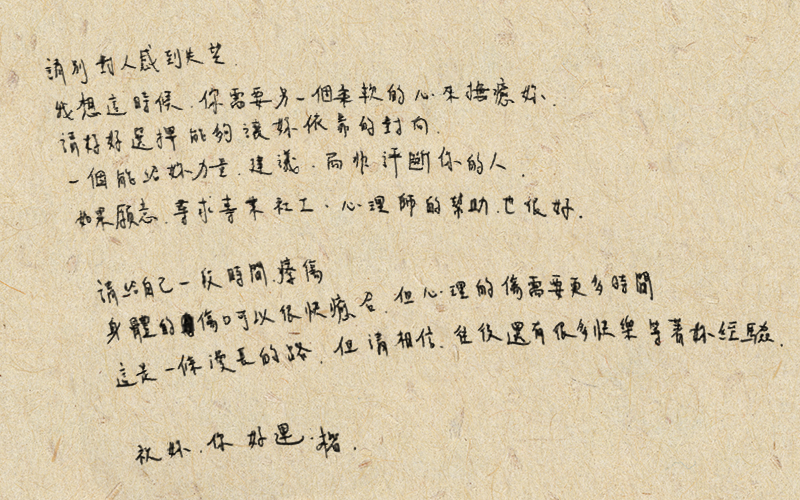 請別對人感到失望.
我想這時候.你需要另一個柔軟的心來撫療妳.
請好好選擇能夠讓妳依靠的對向.
一個能給妳力量.建議.而非評斷你的人.
如果願意.尋求專業社工.心理師的幫助.也很好.
請給自己一段時間.療傷
身體的傷口可以很快療合.但心理的傷需要更多時間
這是一條漫長的路.但請相信.往後還有很多快樂等著妳經驗.
祝妳.你好運.楷.